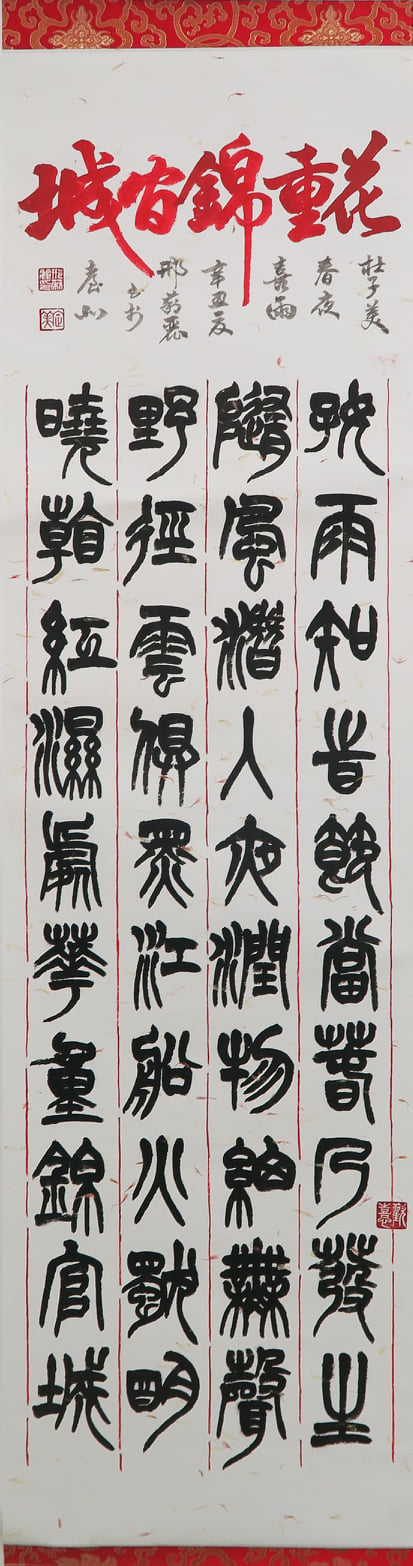 花重錦官城
杜子美
春夜
喜雨
辛丑夏
书於
好雨知時節當春乃發生
隨風潛入夜潤物細無聲
野徑雲俱黑江船火獨明
曉看紅濕處華重錦官城
歡喜